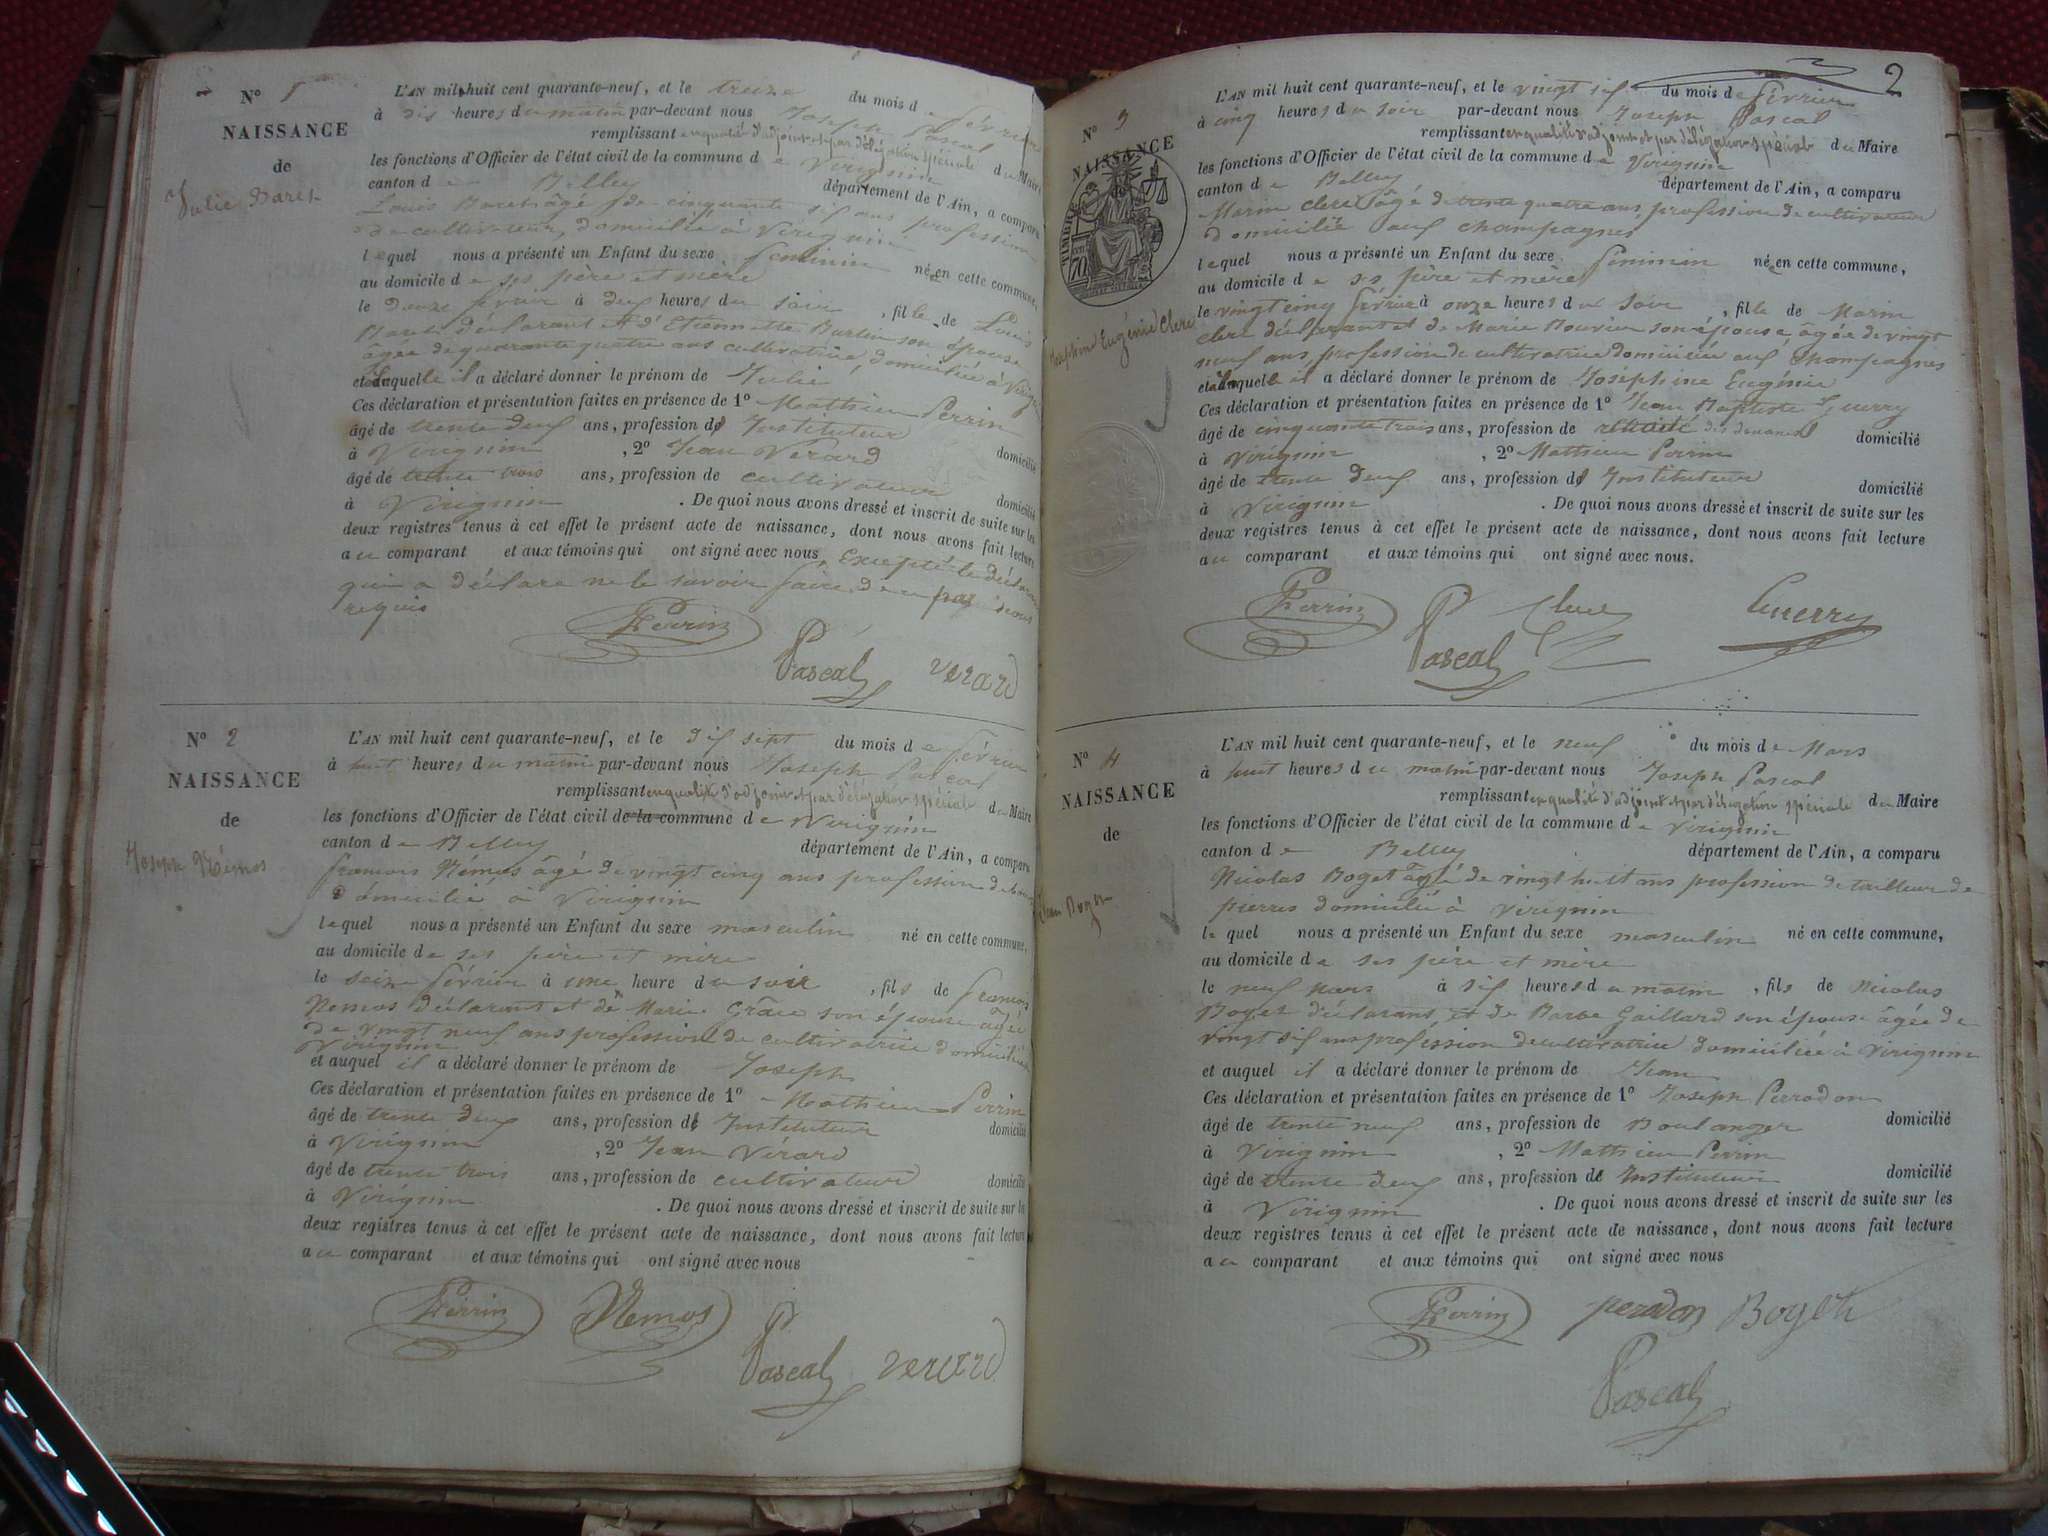 Nº 1
NAISSANCE
de
Julie Baret
L'AN mil huit cent quarante-neuf, et le treize du mois de février
à dix heures du matin par-devant nous Joseph Pascal
remplissant en qualité d'adjoint et par délégation spéciale du Maire
les fonctions d'Officier de l'état civil de la commune de Virignin
canton de Belley département de l'Ain, a comparu
Louis Baret âgé de cinquante six ans profession
de cultivateur, domicilié à Virignin
lequel nous a présenté un Enfant du sexe féminin née en cette commune,
au domicile de ses père et mère
le douze février à deux heures du soir, fille de Louis
Baret déclarant et d'Etiennette Burtin son épouse
âgée de quarante quatre ans cultivatrice, domiciliée à Virignin
et à laquelle il a déclaré donner le prénom de Julie
Ces déclaration et présentation faites en présence de 1º Mathieu Perrin
âgé de trente deux ans, profession d' Instituteur domicilié
à Virignin, 2º Jean Vérard
âgé de trente trois ans, profession de cultivateur domicilié
à Virignin. De quoi nous avons dressé et inscrit de suite sur les
deux registres tenus à cet effet le présent acte de naissance, dont nous avons fait lecture
au comparant et aux témoins qui ont signé avec nous, Excepté le déclarant
qui a déclaré ne le savoir faire de ce par nous
requis
Perrin
Pascal
verard
Nº 2
NAISSANCE
de
Joseph Némos
L'AN mil huit cent quarante-neuf, et le dix sept du mois de février
à huit heures du matin par-devant nous Joseph Pascal
remplissant en qualité d'adjoint et par délégation spéciale du Maire
les fonctions d'Officier de l'état civil de la commune de Virignin
canton de Belley département de l'Ain, a comparu
françois Némos âgé de vingt cinq ans profession de
domicilié à Virignin
lequel nous a présenté un Enfant du sexe masculin né en cette commune,
au domicile de ses père et mère
le seize février à une heure du soir, fils de françois
Nemos déclarant et de Marie Grâce son épouse âgée
de vingt neuf ans profession de cultivatrice domiciliée
Virignin
et auquel il a déclaré donner le prénom de Joseph
Ces déclaration et présentation faites en présence de 1º Mathieu Perrin
âgé de trente deux ans, profession d' Instituteur domicilié
à Virignin, 2º Jean Vérard
âgé de trente trois ans, profession de cultivateur domicilié
à Virignin. De quoi nous avons dressé et inscrit de suite sur les
deux registres tenus à cet effet le présent acte de naissance, dont nous avons fait lecture
au comparant et aux témoins qui ont signé avec nous
Perrin Nemos
Pascal verard
2
Nº 3
NAISSANCE
TIMBRE
70
Joséphine Eugénie Clerc
L'AN mil huit cent quarante-neuf, et le vingt six du mois de février
à cinq heures du soir par-devant nous Joseph Pascal
remplissant en qualité d'adjoint et par délégation spéciale du Maire
les fonctions d'Officier de l'état civil de la commune de Virignin
canton de Belley département de l'Ain, a comparu
Marin Clerc âgé de trente quatre ans, profession de cultivateur
domicilié aux Champagnes
lequel nous a présenté un Enfant du sexe féminin née en cette commune,
au domicile de ses père et mère
le vingt cinq février à onze heures du soir, fille de Marin
Clerc déclarant et de Marie Bouvier son épouse, âgée de vingt
neuf ans, profession de cultivatrice domiciliée aux Champagnes
et à laquelle il a déclaré donner le prénom de Joséphine Eugénie
Ces déclaration et présentation faites en présence de 1º Jean Baptiste Guerry
âgé de cinquante trois ans, profession de retraité des douanes domicilié
à Virignin, 2º Mathieu Perrin
âgé de trente deux ans, profession d' Instituteur domicilié
à Virignin. De quoi nous avons dressé et inscrit de suite sur les
deux registres tenus à cet effet le présent acte de naissance, dont nous avons fait lecture
au comparant et aux témoins qui ont signé avec nous.
Perrin Clerc Guerry
Pascal
Nº 4
NAISSANCE
de
Jean Boget
L'AN mil huit cent quarante-neuf, et le neuf du mois de Mars
à huit heures du matin par-devant nous Joseph Pascal
remplissant en qualité d'adjoint et par délégation spéciale du Maire
les fonctions d'Officier de l'état civil de la commune de Virignin
canton de Belley département de l'Ain, a comparu
Nicolas Boget âgé de vingt huit ans profession de tailleur de
pierres domicilié à Virignin
lequel nous a présenté un Enfant du sexe masculin né en cette commune,
au domicile de ses père et mère
le neuf mars à six heures du matin, fils de Nicolas
Boget déclarant, et de Barbe Gaillard son épouse âgée de
vingt six ans profession de cultivatrice domiciliée à Virignin
et auquel il a déclaré donner le prénom de Jean
Ces déclaration et présentation faites en présence de 1º Joseph Perrodon
âgé de trente neuf ans, profession de Boulanger domicilié
à Virignin, 2º Mathieu Perrin
âgé de trente deux ans, profession d' Instituteur domicilié
à Virignin. De quoi nous avons dressé et inscrit de suite sur les
deux registres tenus à cet effet le présent acte de naissance, dont nous avons fait lecture
au comparant et aux témoins qui ont signé avec nous
Perrin perodon Boget
Pascal